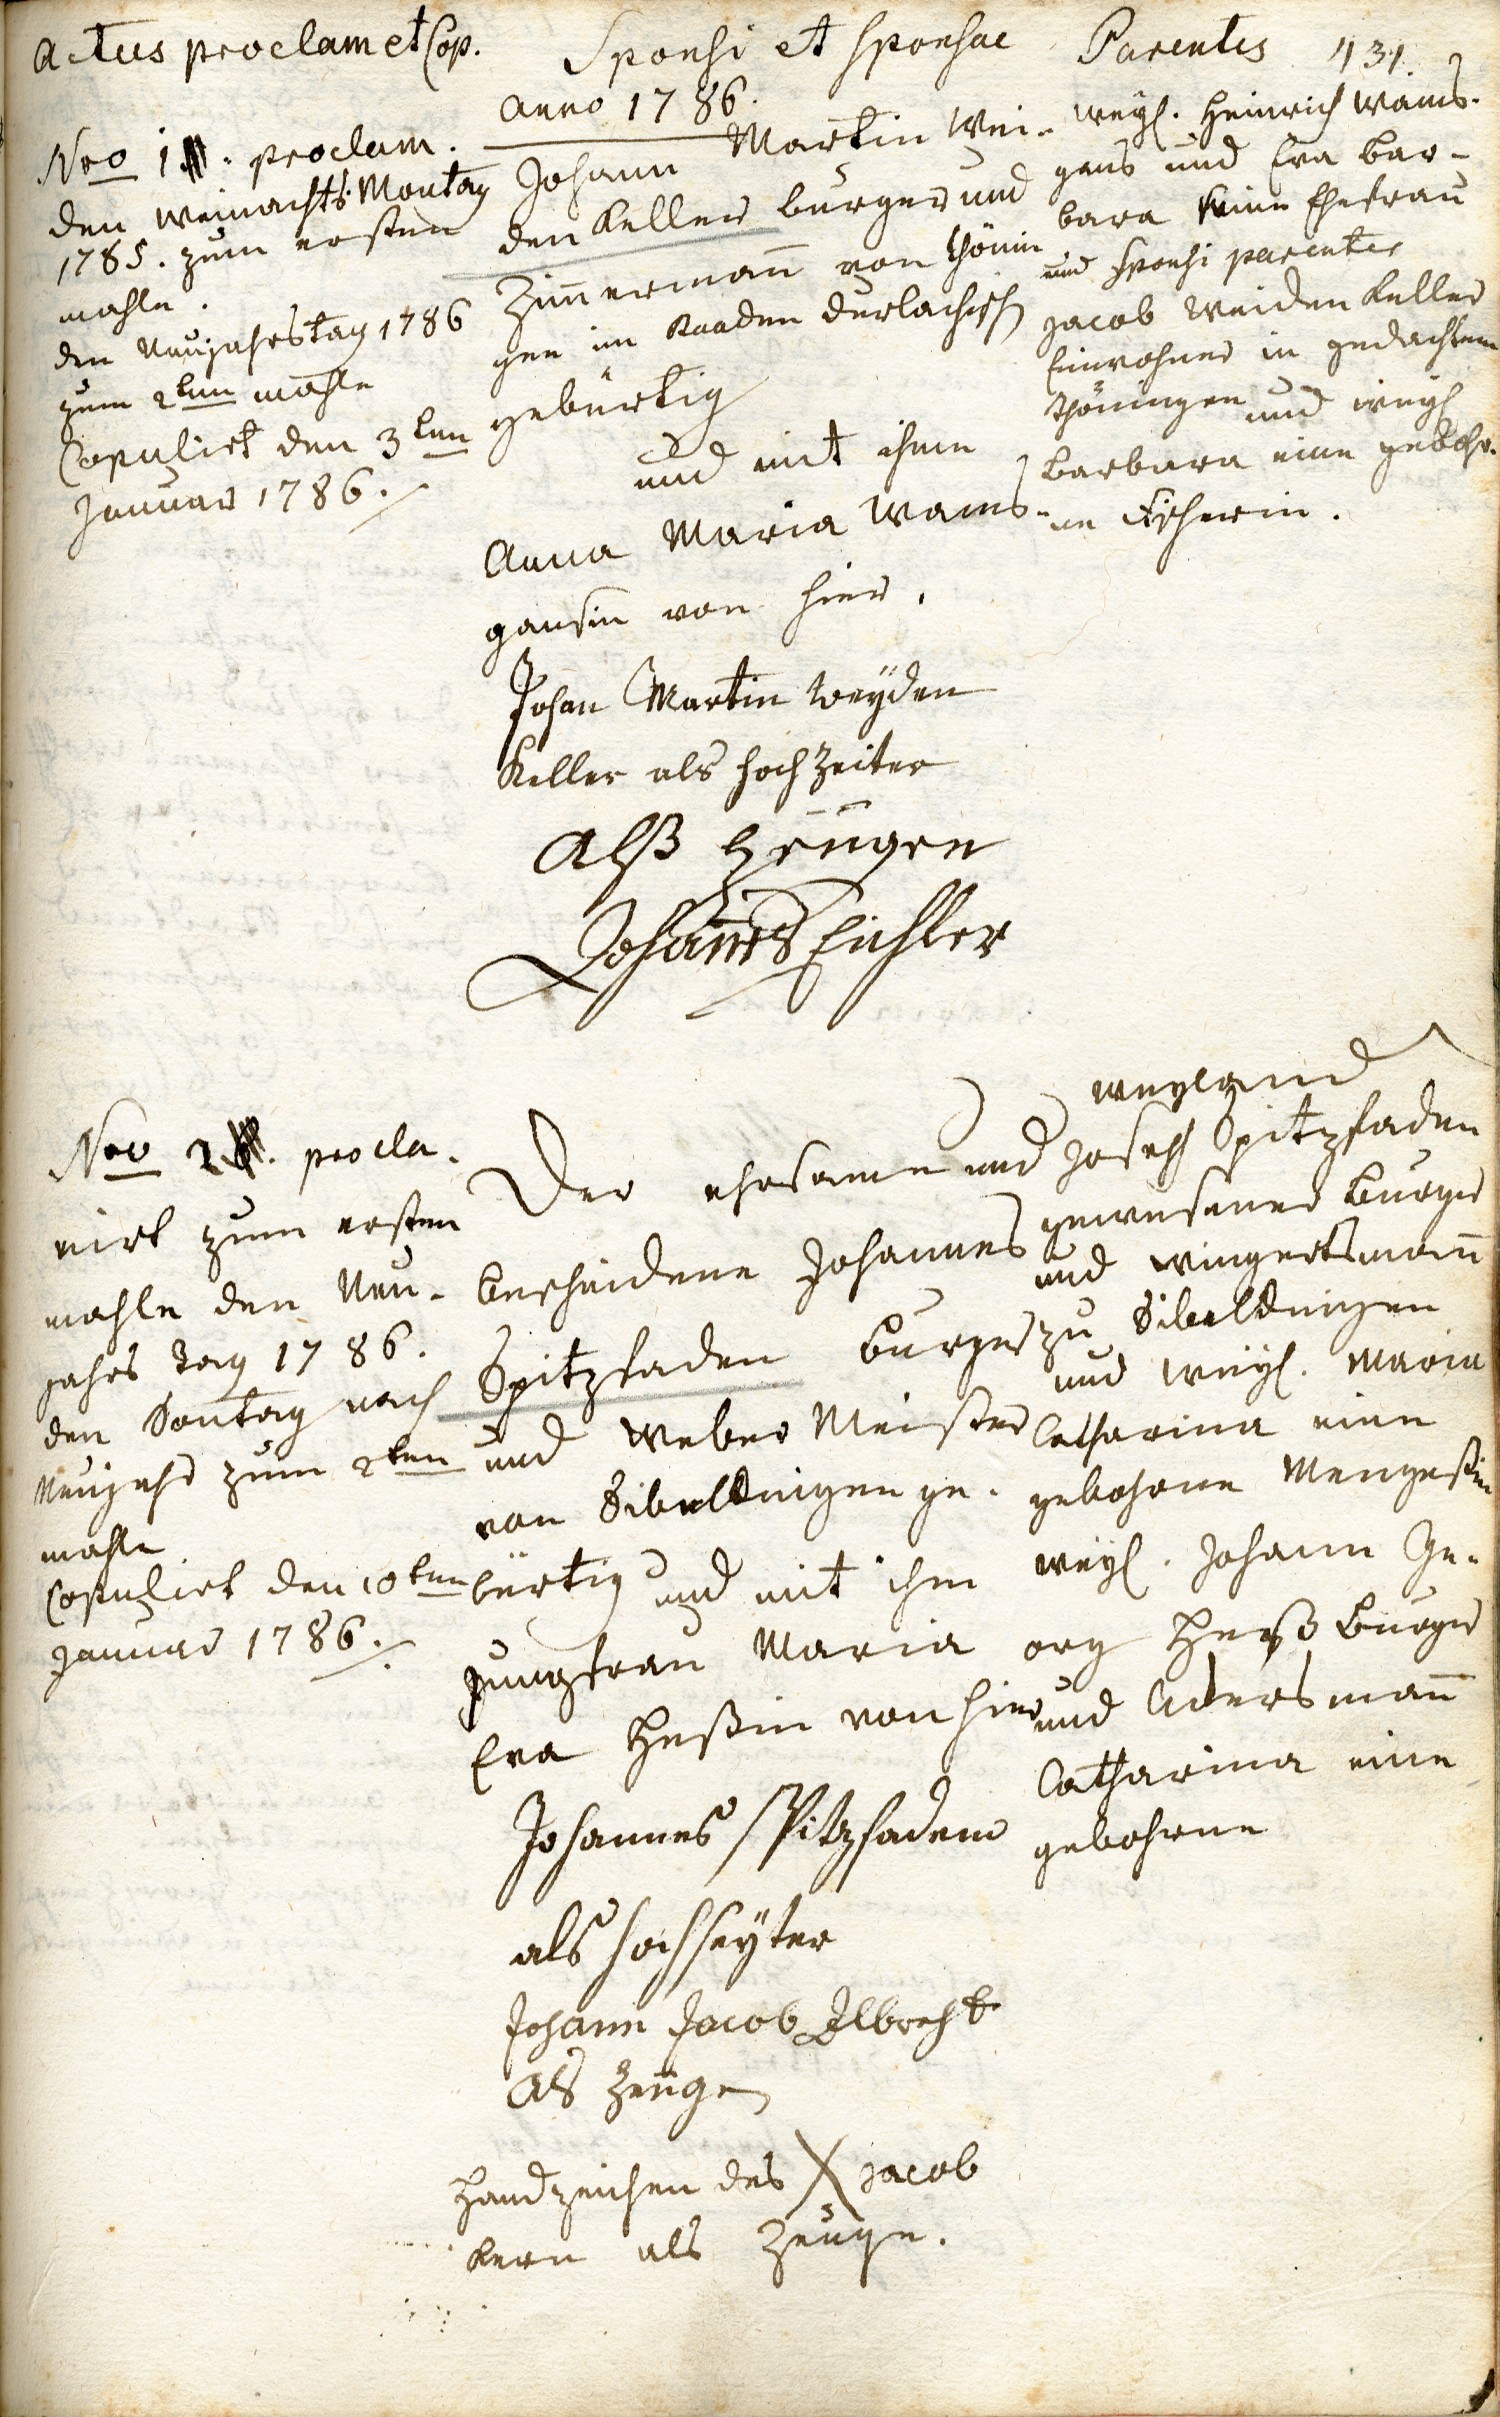 Actus proclam et Cop.
Sponsi et Sponsae
Parentes 431.
Anno 1786.
Nro 1. proclam.
den Weinachts Montag
1785. zum ersten
mahle.
den Neujahrstag 1786
zum 2ten mahle
Copulirt den 3ten
Januar 1786.
Johann Martin Wei-
den Keller burger und
Zimmermann von Thönin
gen im Baaden durlachisch
gebürtig
und mit ihme
Anna Maria Wams-
gansin von hier.
Johan Martin Weyden
Keller als hoch Zeiter
Alß Zeugen
Johannes Eichler
weyl. Heinrich Wams-
gans und Eva Bar-
bara seine Ehefrau
und Sponsi parentes
Jacob Weiden Keller
Einwohner in gedachtem
Thöningen und weyl
Barbara eine gebohr-
ne Fischerin.
Nro 2. procla-
mirt zum ersten
mahle den Neu-
jahrs Tag 1786.
den Sontag nach
Neujahr zum 2ten
mahle
Copulirt den 10ten
Januar 1786.
Der ehrsame und
bescheidene Johannes
Spitzfaden burger
und Weber Meister
von Sibeldingen ge-
bürtig und mit ihm
Jungfrau Maria
Eva Heßin von hier
Johannes Spitzfadem
als hochseyter
Johann Jacob Albrecht
als Zeuge
Handzeichen des X Jacob
Kern als Zeuge.
weyland
Joseph Spitzfaden
gewesener Burger
und Wingertsmann
zu Sibeldingen
und weyl. Maria
Catharina eine
gebohrne Mengeßin
weyl. Johann Ge-
org Heß Burger
und Ackersmann
Catharina eine
gebohrne